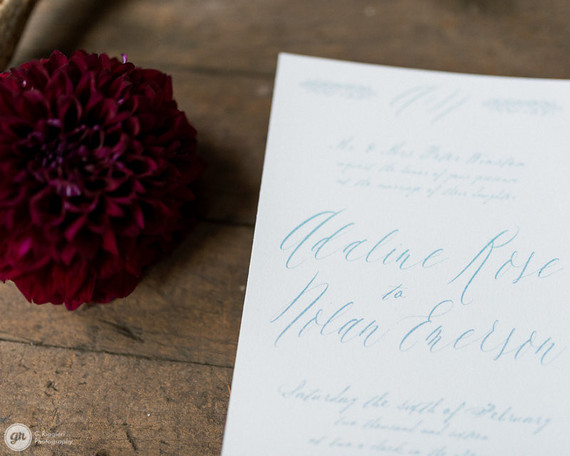 Mr. & Mrs. Peter
request the honor of your presence
at the marriage of their daughter
Adaline Rose
to
Nolan Emerson
Saturday the sixth of February
two thousand and sixteen
at two o'clock in the
gr
Photography